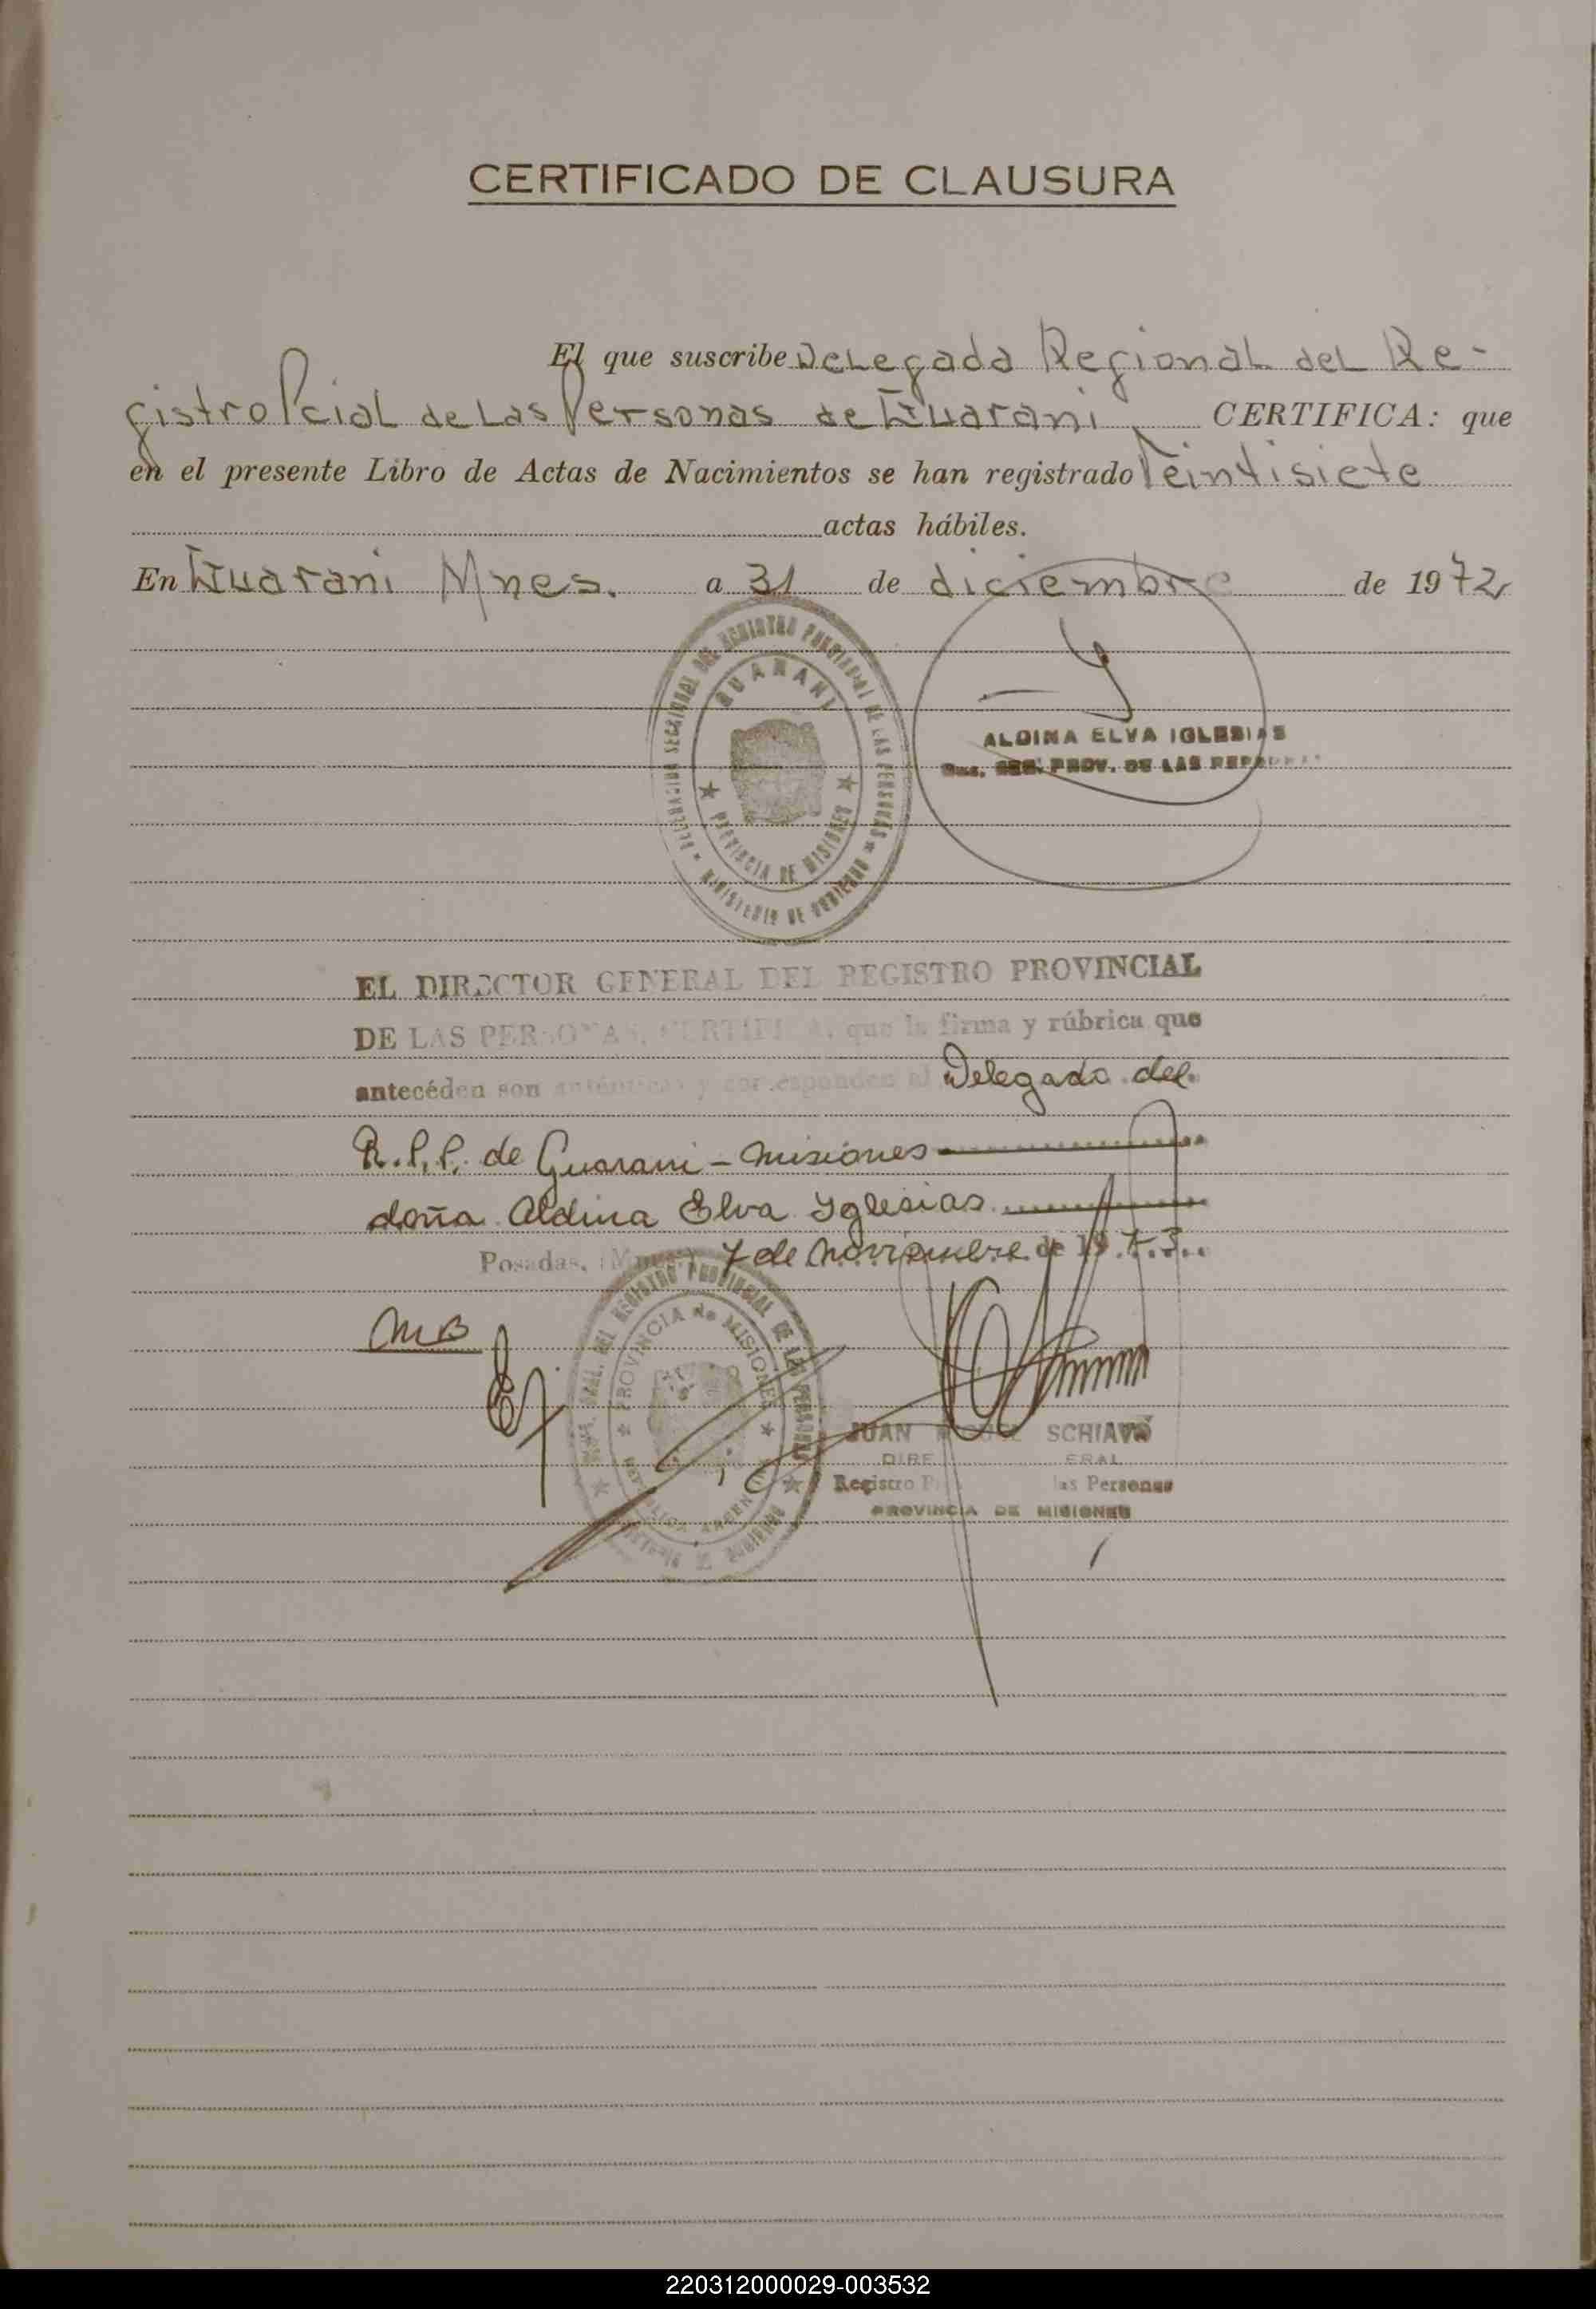 CERTIFICADO DE CLAUSURA
El que suscribe Delegada Regional del Re-
gistro Pcial de Las Personas de Guarani CERTIFICA: que
en el presente Libro de Actas de Nacimientos se han registrado Veintisiete
actas hábiles.
En Guarani Mnes. a 31 de diciembre de 1972
SECCIONAL DEL REGISTRO PROVINCIAL DE LAS PERSONAS
GUARANI
PROVINCIA DE MISIONES
MINISTERIO DE GOBIERNO
ALDINA ELVA IGLESIAS
PROV. DE LAS PERSONAS
EL DIRECTOR GENERAL DEL REGISTRO PROVINCIAL
DE LAS PERSONAS, CERTIFICA, que la firma y rúbrica que
antecéden son auténticas y corresponden al Delegado del
R.P.P. de Guarani - Misiones
doña Aldina Elva Yglesias
Posadas, (Mnes.) 7 de Noviembre de 1973
MB
DEL REGISTRO PROVINCIAL DE LAS PERSONAS
PROVINCIA de MISIONES
JUAN SCHIAVO
Registro las Personas
PROVINCIA DE MISIONES
220312000029-003532